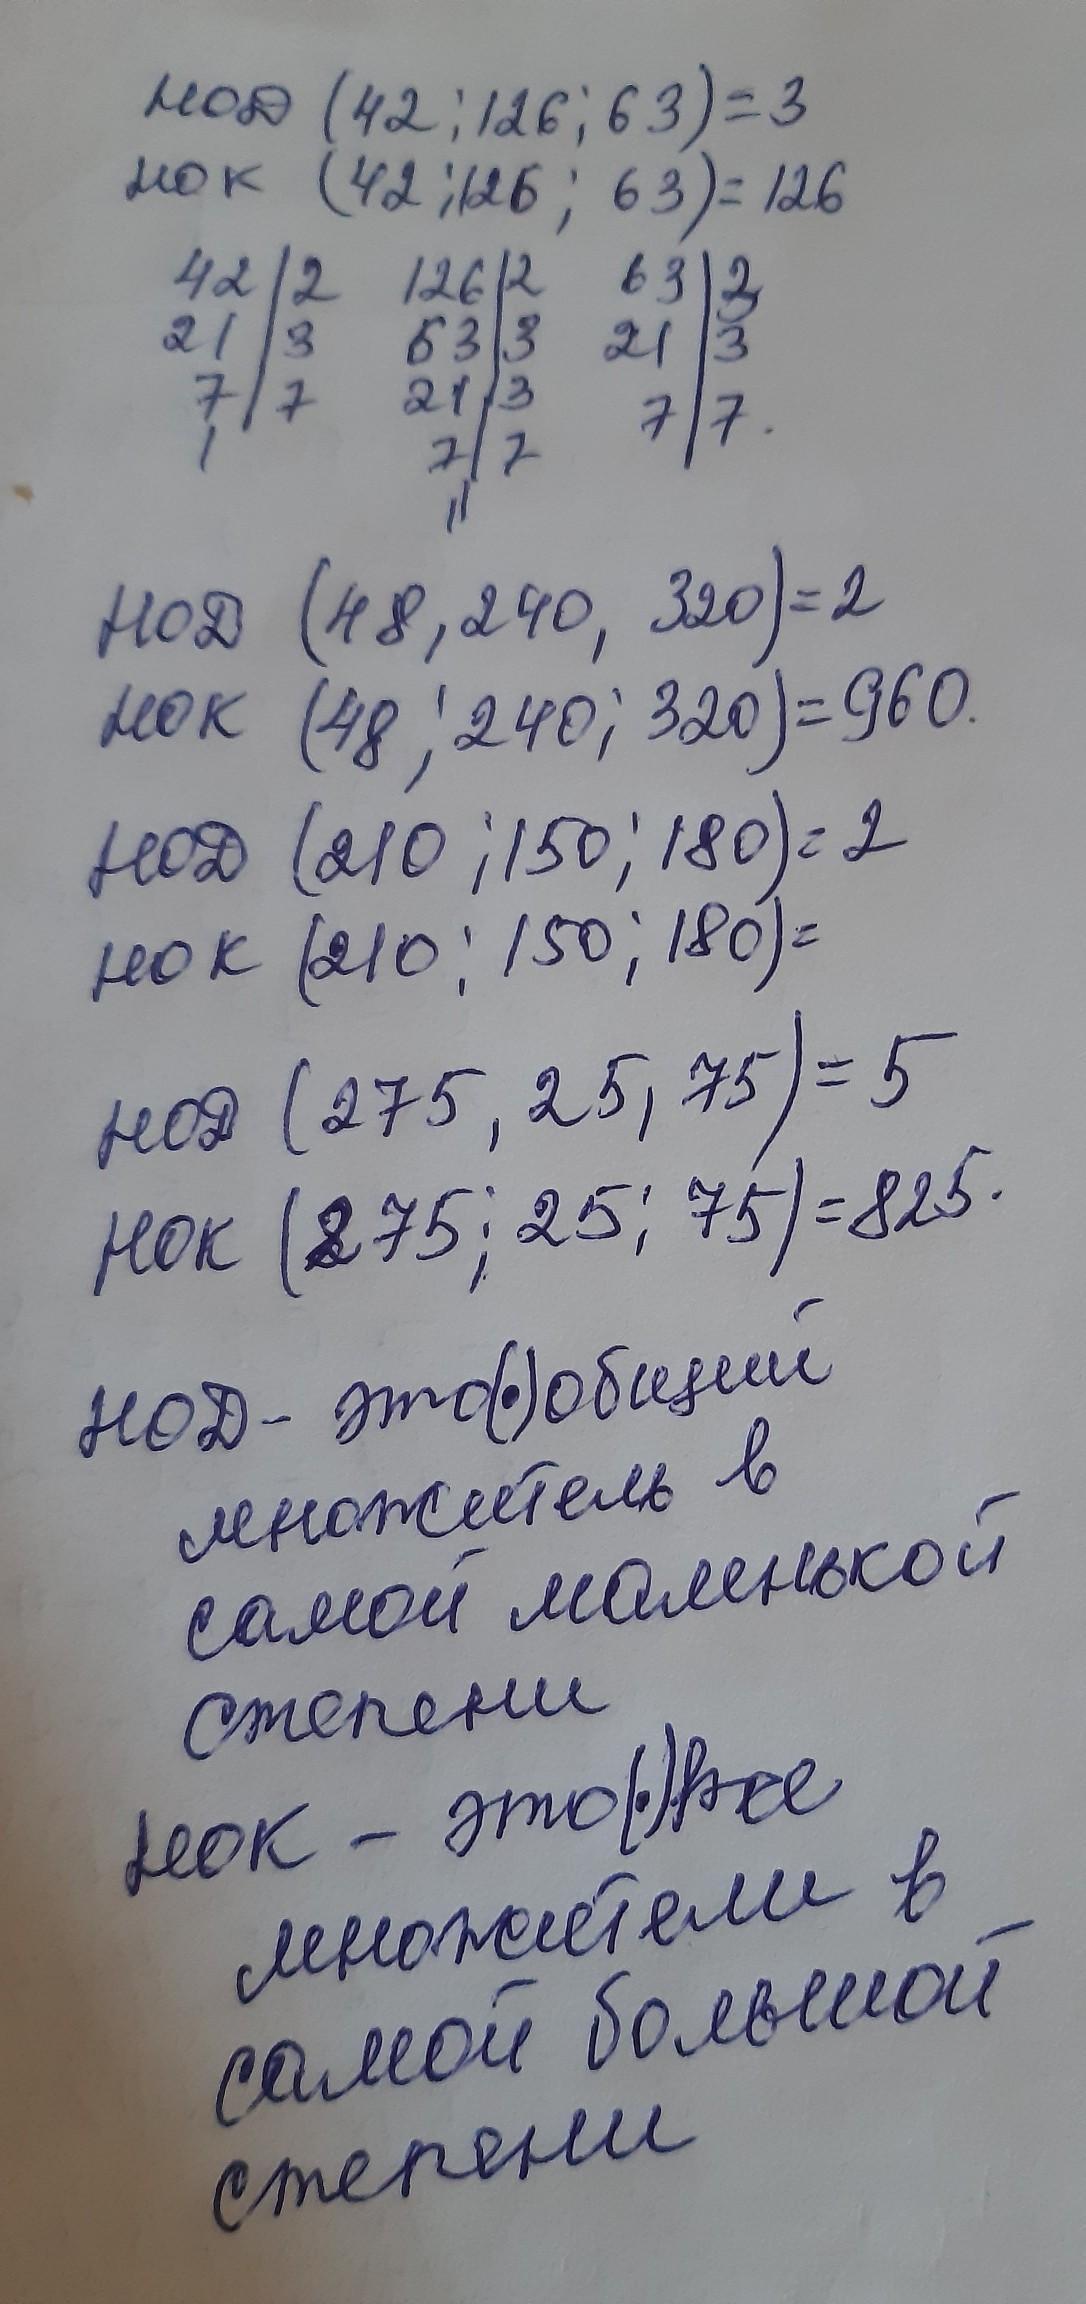 НОД (42; 126; 63) = 3
НОК (42; 126; 63) = 126
42 | 2 126 | 2 63 | 2
21 | 3 63 | 3 21 | 3
7 | 7 21 | 3 7 | 7.
1 7 | 7
11
НОД (48, 240, 320) = 2
НОК (48; 240; 320) = 960.
НОД (210; 150; 180) = 2
НОК (210; 150; 180) =
НОД (275, 25, 75) = 5
НОК (275; 25; 75) = 825.
НОД - это (•) общий
множитель в
самой маленькой
степени
НОК - это (•) все
множители в
самой большой
степени